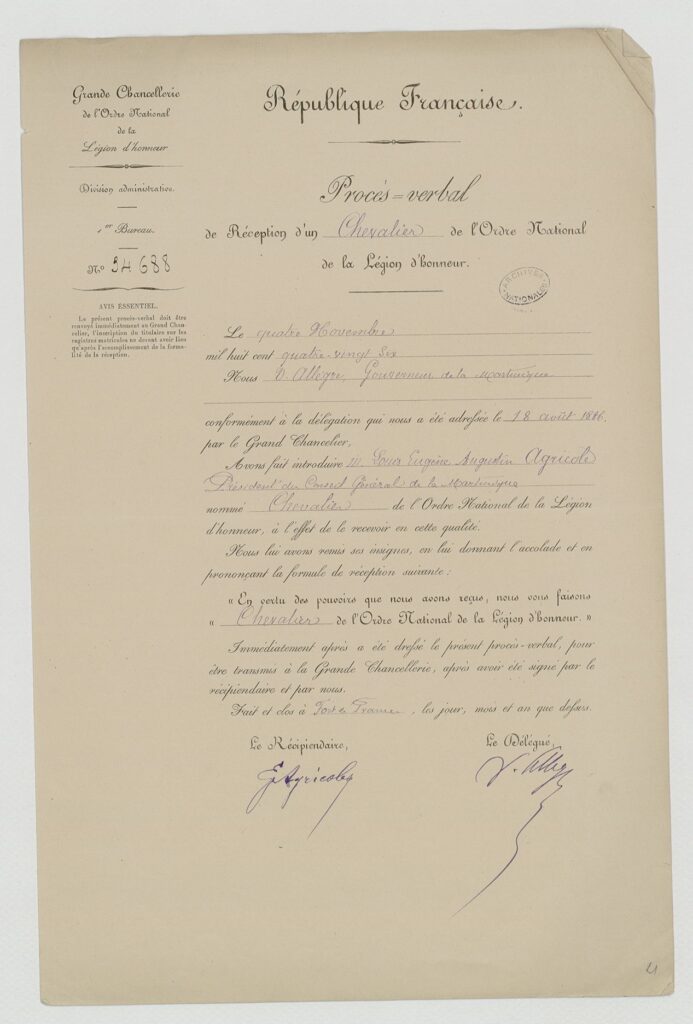 Grande Chancellerie
de l'Ordre National
de la
Légion d'honneur
Division administrative.
1er Bureau.
N° 34688
AVIS ESSENTIEL.
Le présent procès-verbal doit être
renvoyé immédiatement au Grand Chan-
celier, l'inscription du titulaire sur les
registres matricules ne devant avoir lieu
qu'après l'accomplissement de la forma-
lité de la réception.
République Française.
Procès=verbal
de Réception d'un Chevalier de l'Ordre National
de la Légion d'honneur.
ARCHIVES
NATIONALES
Le quatre Novembre
mil huit cent quatre-vingt six
Nous V. Allègre, Gouverneur de la Martinique
conformément à la délégation qui nous a été adressée le 18 août 1886.
par le Grand Chancelier,
Avons fait introduire M. Louis Eugène Augustin Agricole
Président du Conseil Général de la Martinique
nommé Chevalier de l'Ordre National de la Légion
d'honneur, à l'effet de le recevoir en cette qualité.
Nous lui avons remis ses insignes, en lui donnant l'accolade et en
prononçant la formule de réception suivante :
« En vertu des pouvoirs que nous avons reçus, nous vous faisons
« Chevalier de l'Ordre National de la Légion d'honneur. »
Immédiatement après a été dressé le présent procès-verbal, pour
être transmis à la Grande Chancellerie, après avoir été signé par le
récipiendaire et par nous.
Fait et clos à Fort de France, les jour, mois et an que dessus.
Le Récipiendaire,
Le Délégué,
E Agricole
V. Allègre
4